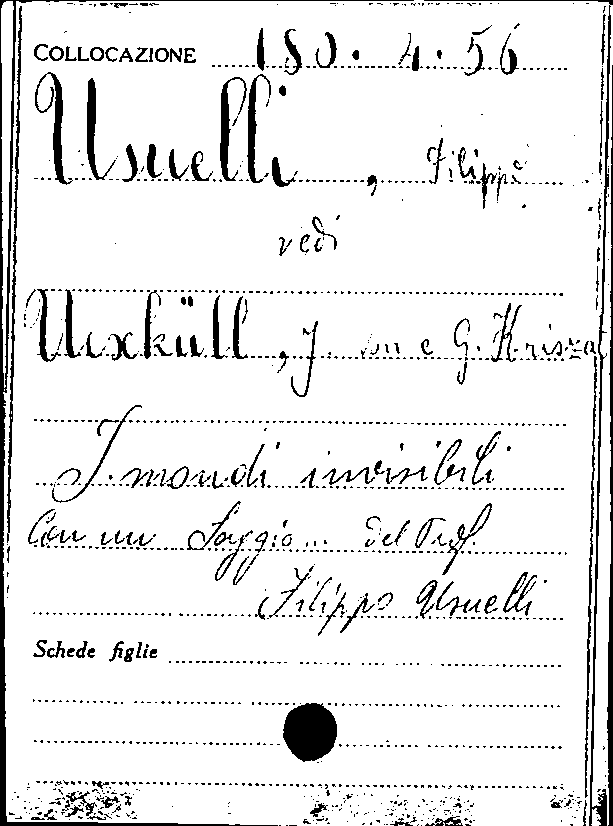 COLLOCAZIONE 180. 4. 56
Usuelli, Filippo
vedi
Uexküll, J. von e G. Krisza
I mondi invisibili
Con un Saggio... del Prof.
Filippo Usuelli
Schede figlie